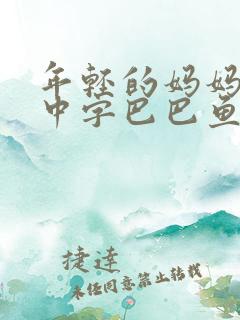 年轻的妈妈
中字巴巴鱼
捷達
未经同意禁止转载